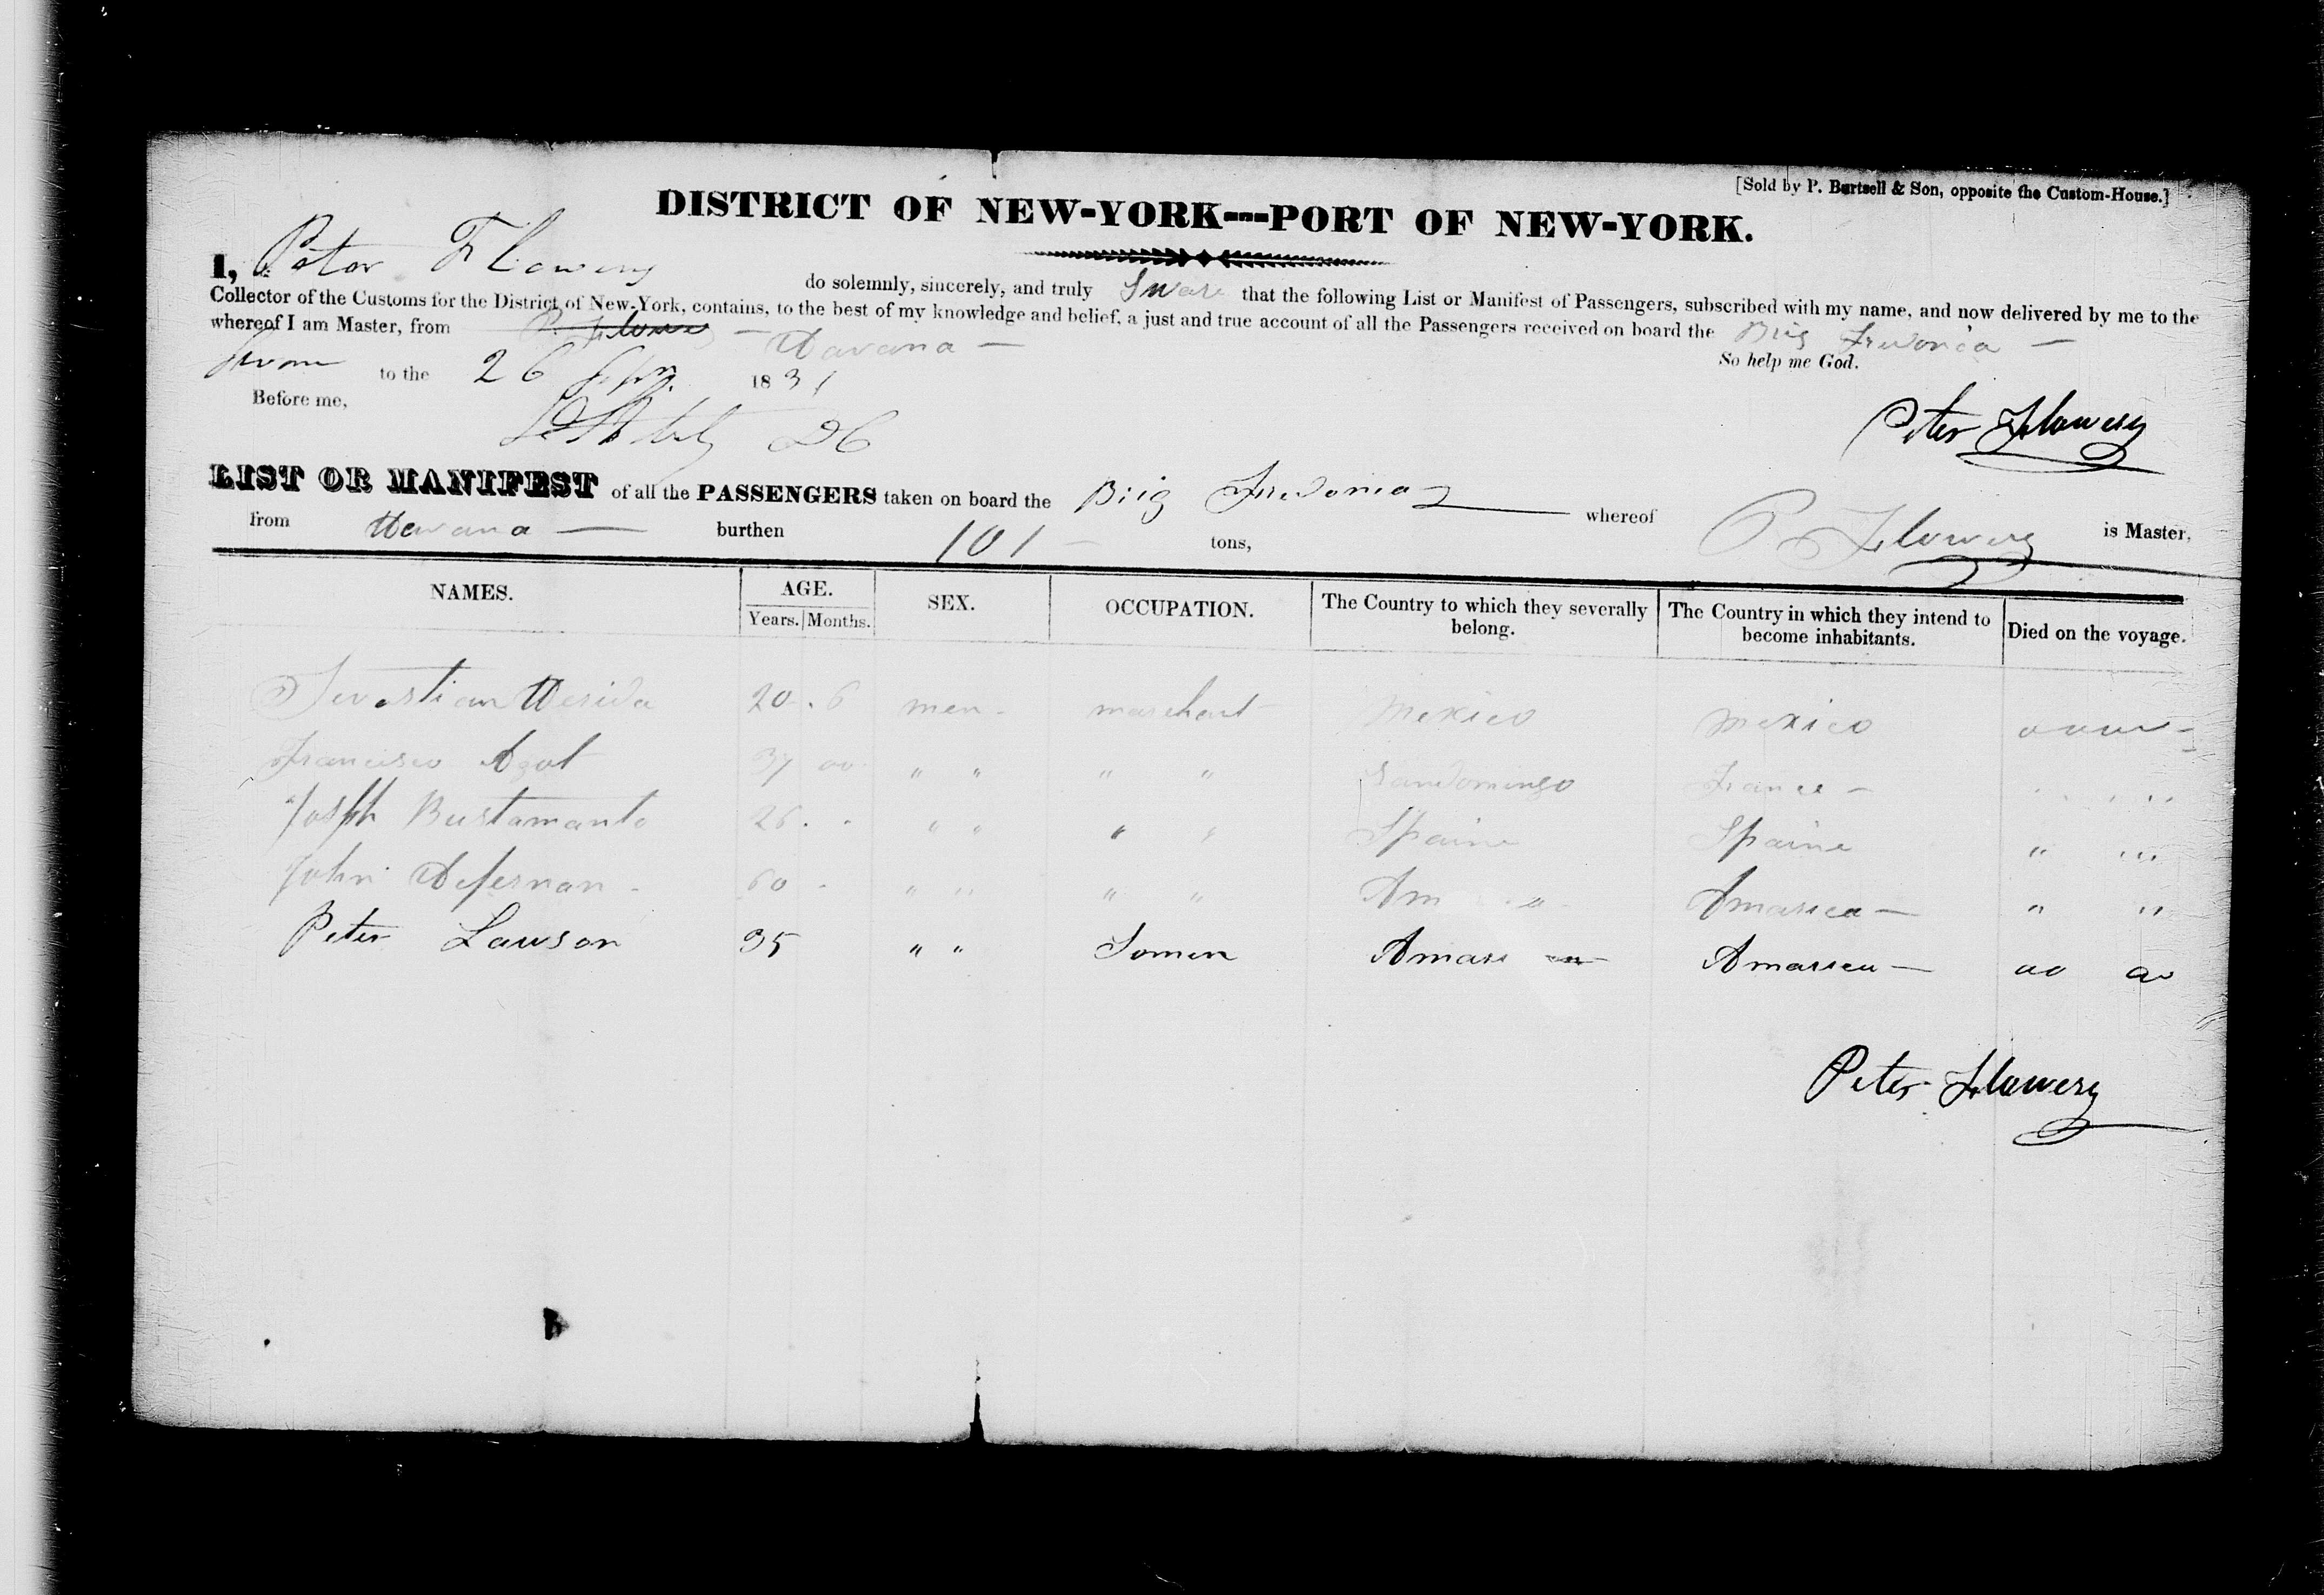 [Sold by P. Burtsell & Son, opposite the Custom-House.]
DISTRICT OF NEW-YORK---PORT OF NEW-YORK.
I, Peter Flowery do solemnly, sincerely, and truly Sware that the following List or Manifest of Passengers, subscribed with my name, and now delivered by me to the
Collector of the Customs for the District of New-York, contains, to the best of my knowledge and belief, a just and true account of all the Passengers received on board the Brig Fredonia
whereof I am Master, from Havana So help me God.
Sworn to the 26 1831
Before me, 26
Peter Flowery
LIST OR MANIFEST of all the PASSENGERS taken on board the Brig Fredonia whereof P Flowery is Master,
from Havana burthen 101 tons,
NAMES. AGE. SEX. OCCUPATION. The Country to which they severally belong. The Country in which they intend to become inhabitants. Died on the voyage.
Years. Months.
Sevastian Merida 20 . 6 men marchant Mexico Mexico
Francisco 37 " " " " Sandomingo France
Joseph Bustamanto 26 " " " " Spaine Spaine " "
John 60 " " " " Am a Amarica " "
Peter Lawson 35 " " Amari Amarica
Peter Flowery